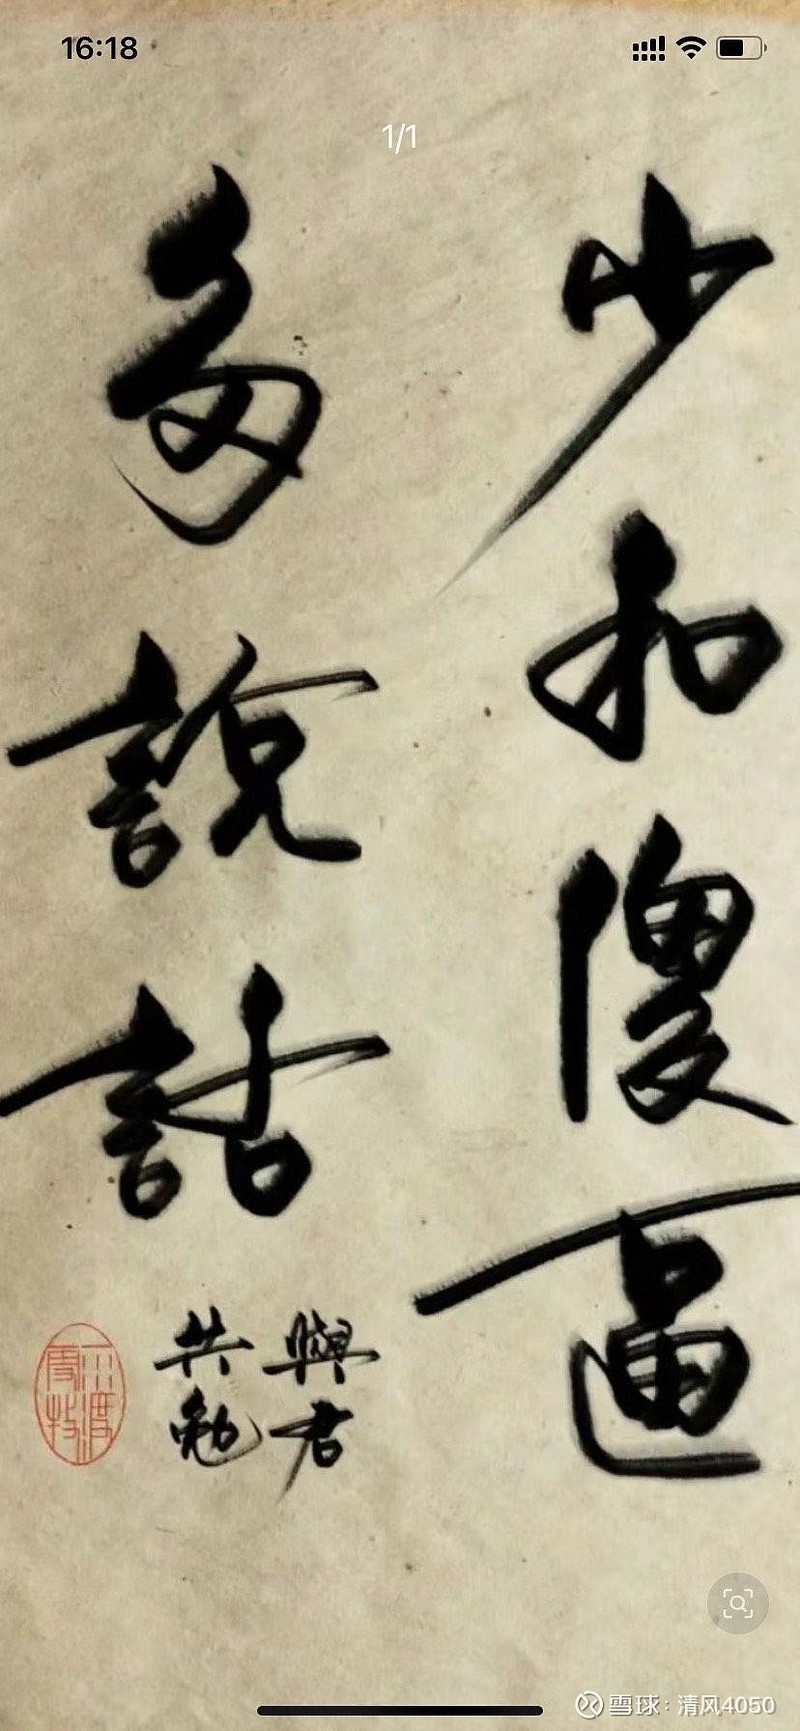 16:18
1/1
少和傻逼
多說話
與君
共勉
雪球：清风4050